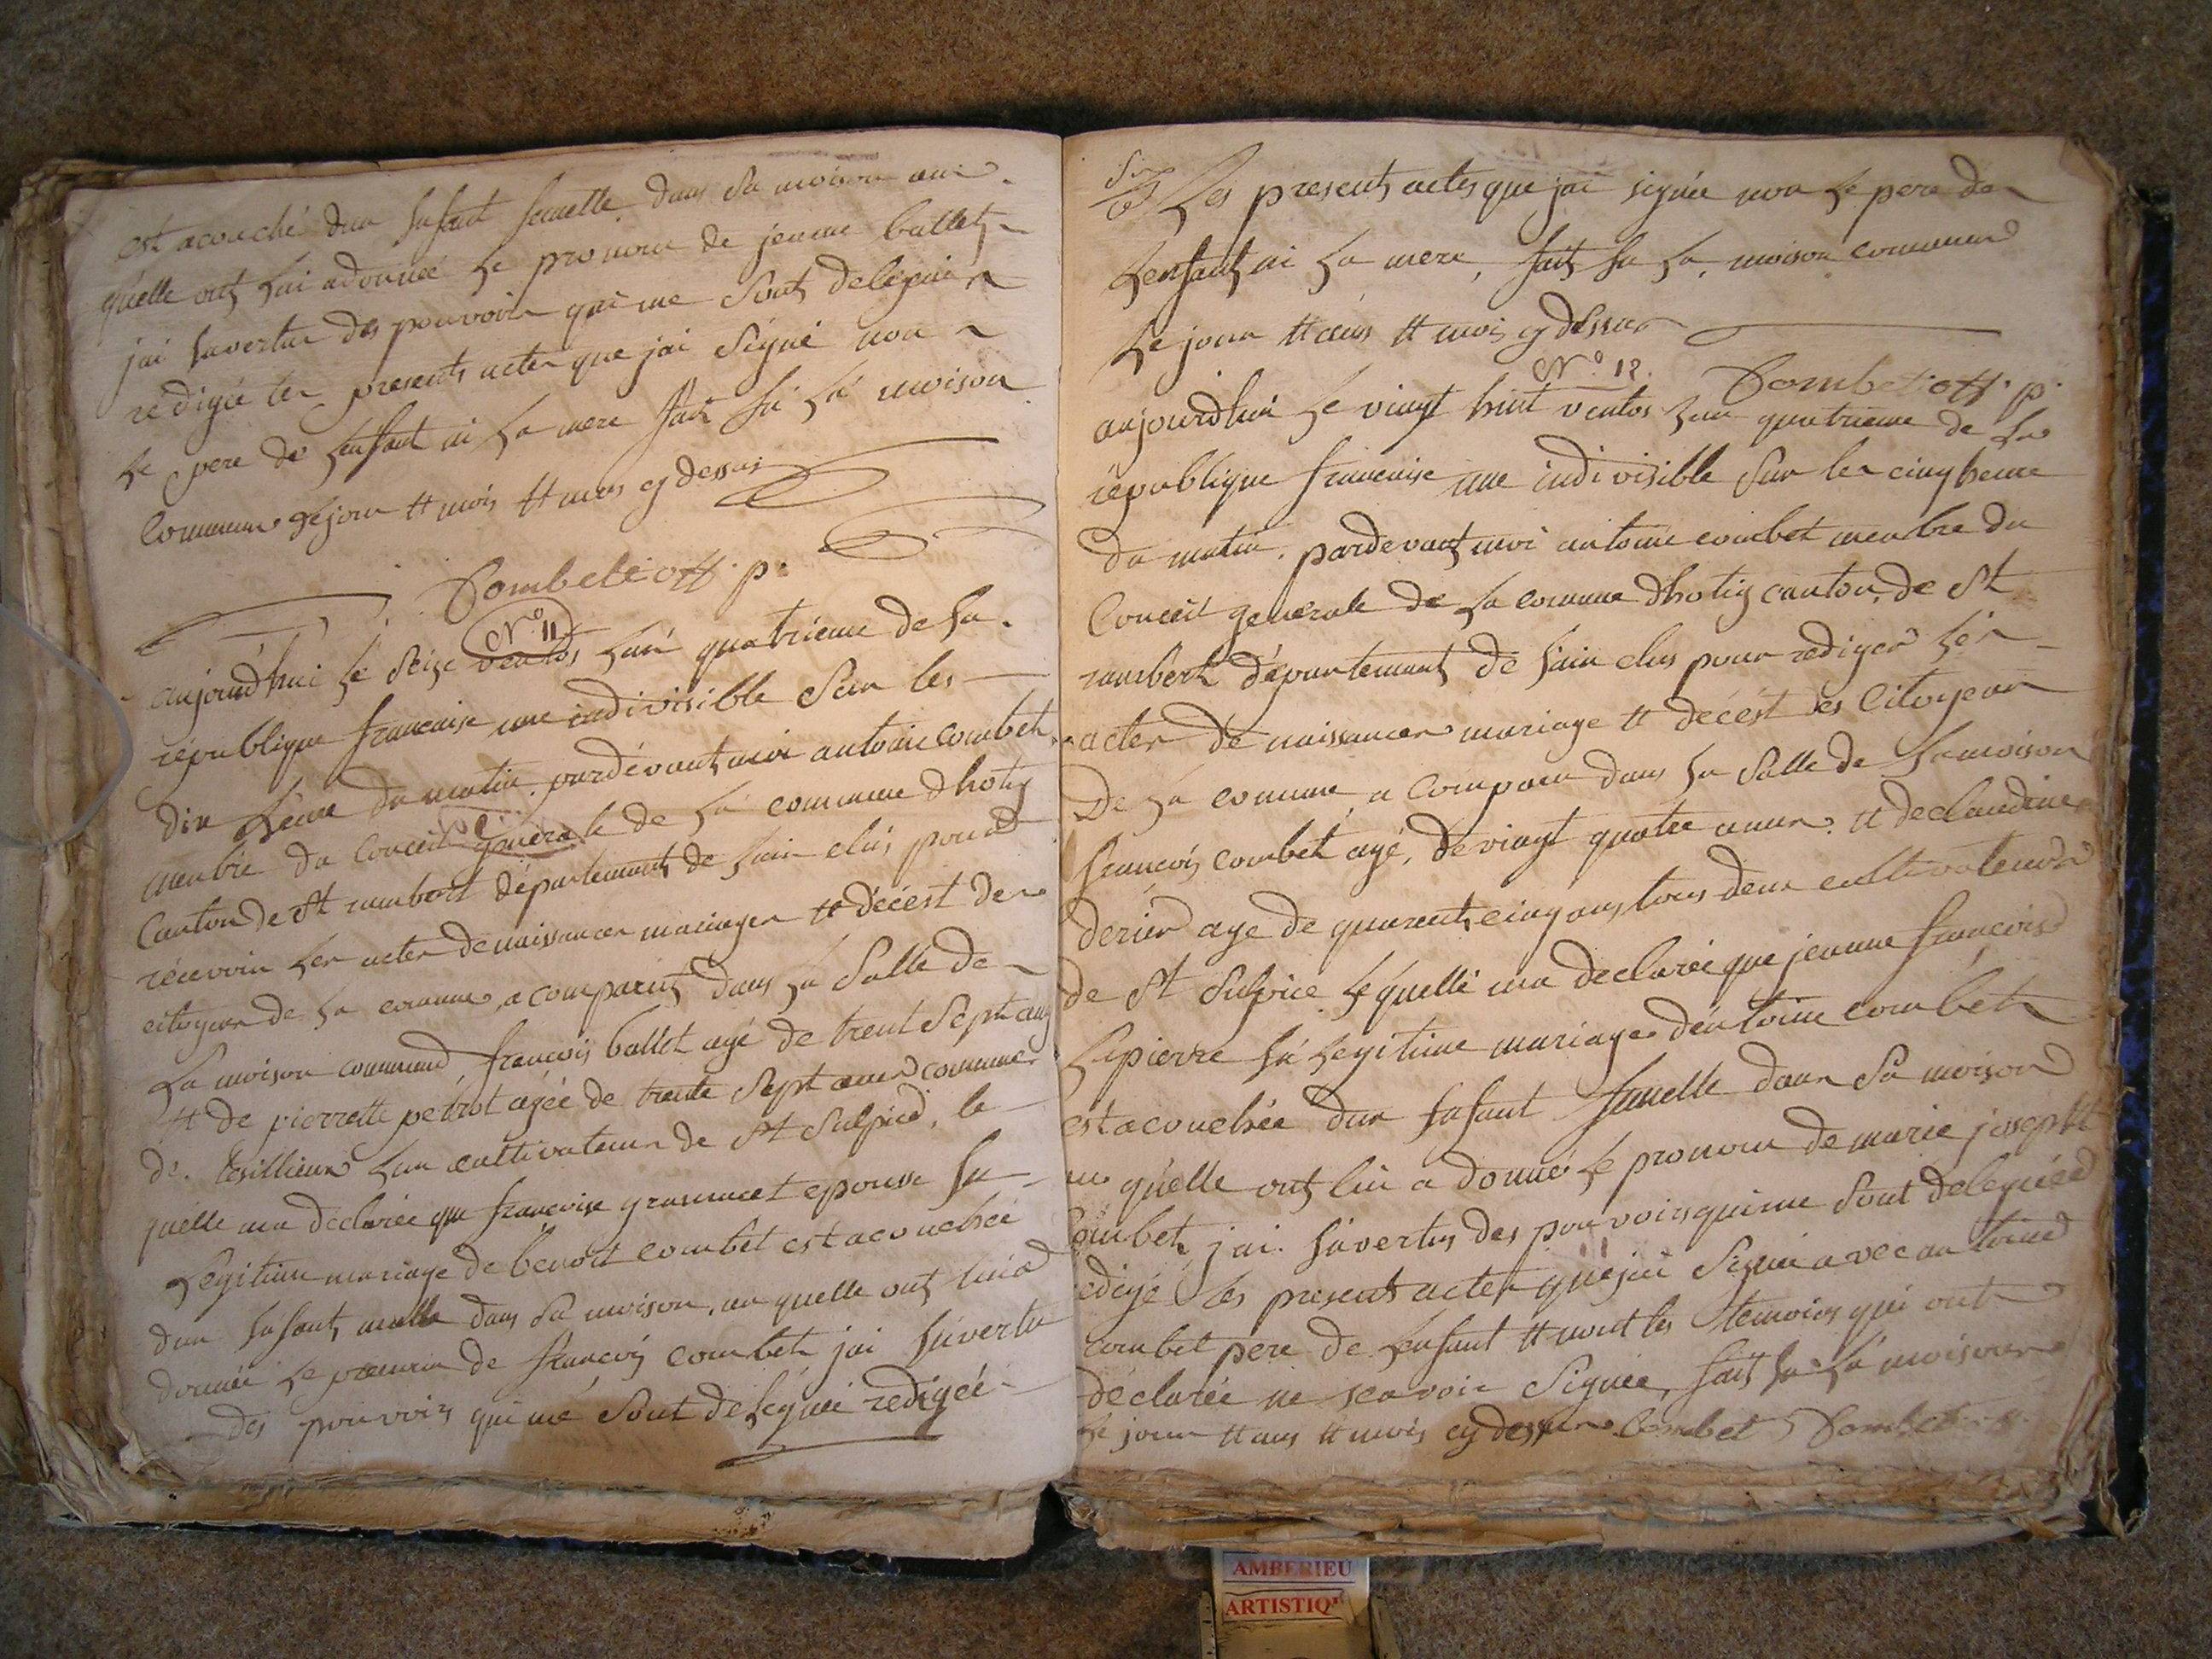 est acouché dun enfant femelle dans sa moison au
quélle ont lui a donnéé le pronom de jeanne ballet
jai en vertu des pouvoirs qui me sont delegué
rédigée les presents actes que jai signé non
le pere de lenfant ni la mere fait en la moison
commune le jour et mois et cy dessus
Combet off. p.
N.° 11
aujourdhui le seize ventos lan quatrieme de la
république francaise une indivisible sur les
dix heure du matin pardévant moi antoine combet
menbre du conceil generale de la commune dhotig
canton de St rambert département de lain elus pour
récevoir les actes de naissances mariages et décést des
citoyens de la comune a comparut dans la salle de
la moison commune françois ballet agé de trent sept ans
et de pierrette petrot agée de trente sept ans commune
de lun cultivateur de St Sulpice, le
quélle ma declarée que francoise grasmuet epouse en
legitime mariage de bénoit combet est acouchée
dun enfant malle dans sa moison, au quelle ont lui a
donnée le pronom de francois combet jai en vertu
des pouvoirs qui mé sont delegué redigée
Les presents actes que jai signée non le pere de
lenfant ni la mere, fait en la moison commune
le jour et ans et mois cy dessus
Combet off. p.
N.° 12.
aujourdhui le vingt huit ventos lan quatrieme de la
république francaise une indivisible sur les cinq heure
du matin. pardevant moi antoine combet menbre du
conceil generale de la comune dhotig canton de St
rambert département de lain elus pour rediger les
actes de naissances mariage et décést des citoyens
de la comune, a comparu dans la salle de la moison
francois combet agé, de vingt quatre annes et de claudine
derier age de quarent cinq ans tous deux cultivateurs
de St Sulpice lequelle ma declarée que jeanne francoise
lepierre en legitime mariage dentoine combet
est acouchée dun enfant femelle dans sa moison
au quélle ont lui a donné le pronom de marie josepht
combet, jai en vertus des pouvoirs qui me sont deleguée
redigé les presents actes que jai signé avec antoine
combet pere de lenfant et nont les temoins qui ont
déclarée ne scavoir signée, fait en la moison
le jour et ans et mois cy dessus combet Combet
AMBERIEU
ARTISTIQ